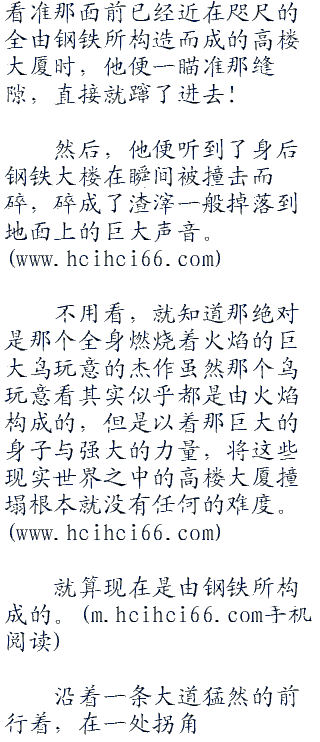 看准那面前已经近在咫尺的
全由钢铁所构造而成的高楼
大厦时，他便一瞄准那缝
隙，直接就蹿了进去！
然后，他便听到了身后
钢铁大楼在瞬间被撞击而
碎，碎成了渣滓一般掉落到
地面上的巨大声音。
(www.hcihci66.com)
不用看，就知道那绝对
是那个全身燃烧着火焰的巨
大鸟玩意的杰作虽然那个鸟
玩意看其实似乎都是由火焰
构成的，但是以着那巨大的
身子与强大的力量，将这些
现实世界之中的高楼大厦撞
塌根本就没有任何的难度。
(www.hcihci66.com)
就算现在是由钢铁所构
成的。(m.hcihci66.com手机
阅读)
沿着一条大道猛然的前
行着，在一处拐角